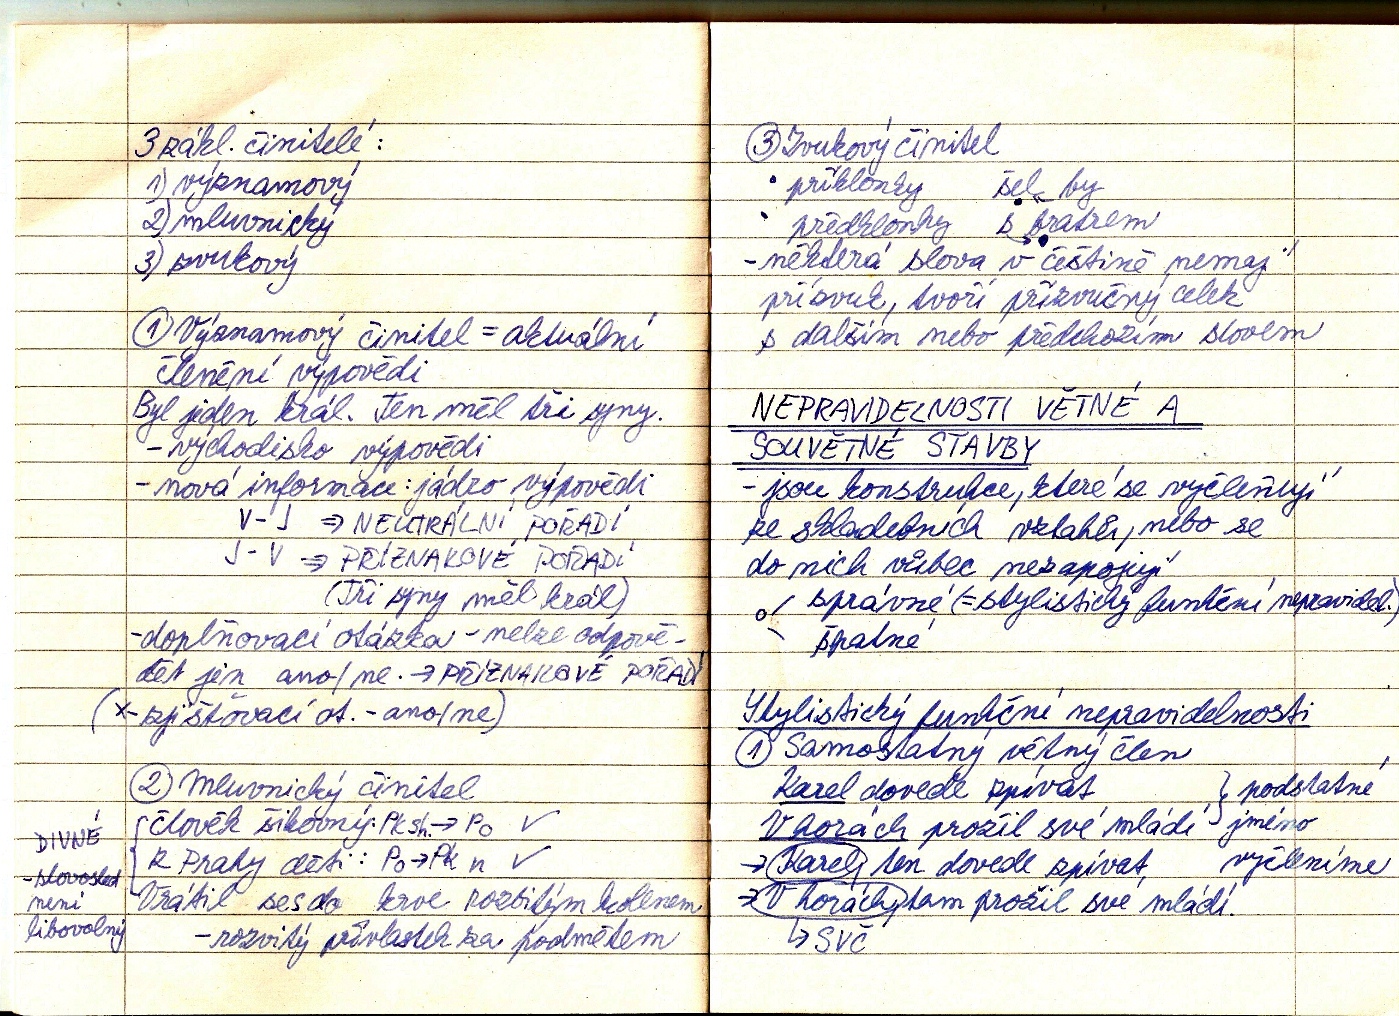 3 zákl. činitelé:
1) významový
2) mluvnický
3) zvukový
① Významový činitel = aktuální
členění výpovědi
Byl jeden král. Ten měl tři syny.
- východisko výpovědi
- nová informace: jádro výpovědi
V - J ⇒ NEUTRÁLNÍ POŘADÍ
J - V ⇒ PŘÍZNAKOVÉ POŘADÍ
(Tři syny měl král)
- doplňovací otázka - nelze odpově-
dět jen ano/ne. → PŘÍZNAKOVÉ POŘADÍ
(x- zjišťovací ot. - ano/ne)
② Mluvnický činitel
člověk šikovný: Pksh. → Po ✓
z Prahy děti: Po → Pk n ✓
Vrátil se do krve rozbitým kolenem
- rozvitý přívlastek za podmětem
DIVNÉ
- slovosled
není
libovolný
③ Zvukový činitel
• příklonky šel by
• předklonky s bratrem
- některá slova v češtině nemají
přízvuk, tvoří přízvučný celek
s dalším nebo předchozím slovem
NEPRAVIDELNOSTI VĚTNÉ A
SOUVĚTNÉ STAVBY
- jsou konstrukce, které se vyčleňují
ze skladebních vztahů, nebo se
do nich vůbec nezapojují
správné (= stylisticky funkční nepravidel.)
špatné
Stylisticky funkční nepravidelnosti
① Samostatný větný člen
Karel dovede zpívat } podstatné
V horách prožil své mládí jméno
→ Karel, ten dovede zpívat vyčleníme
→ V horách, tam prožil své mládí.
↳ SVČ